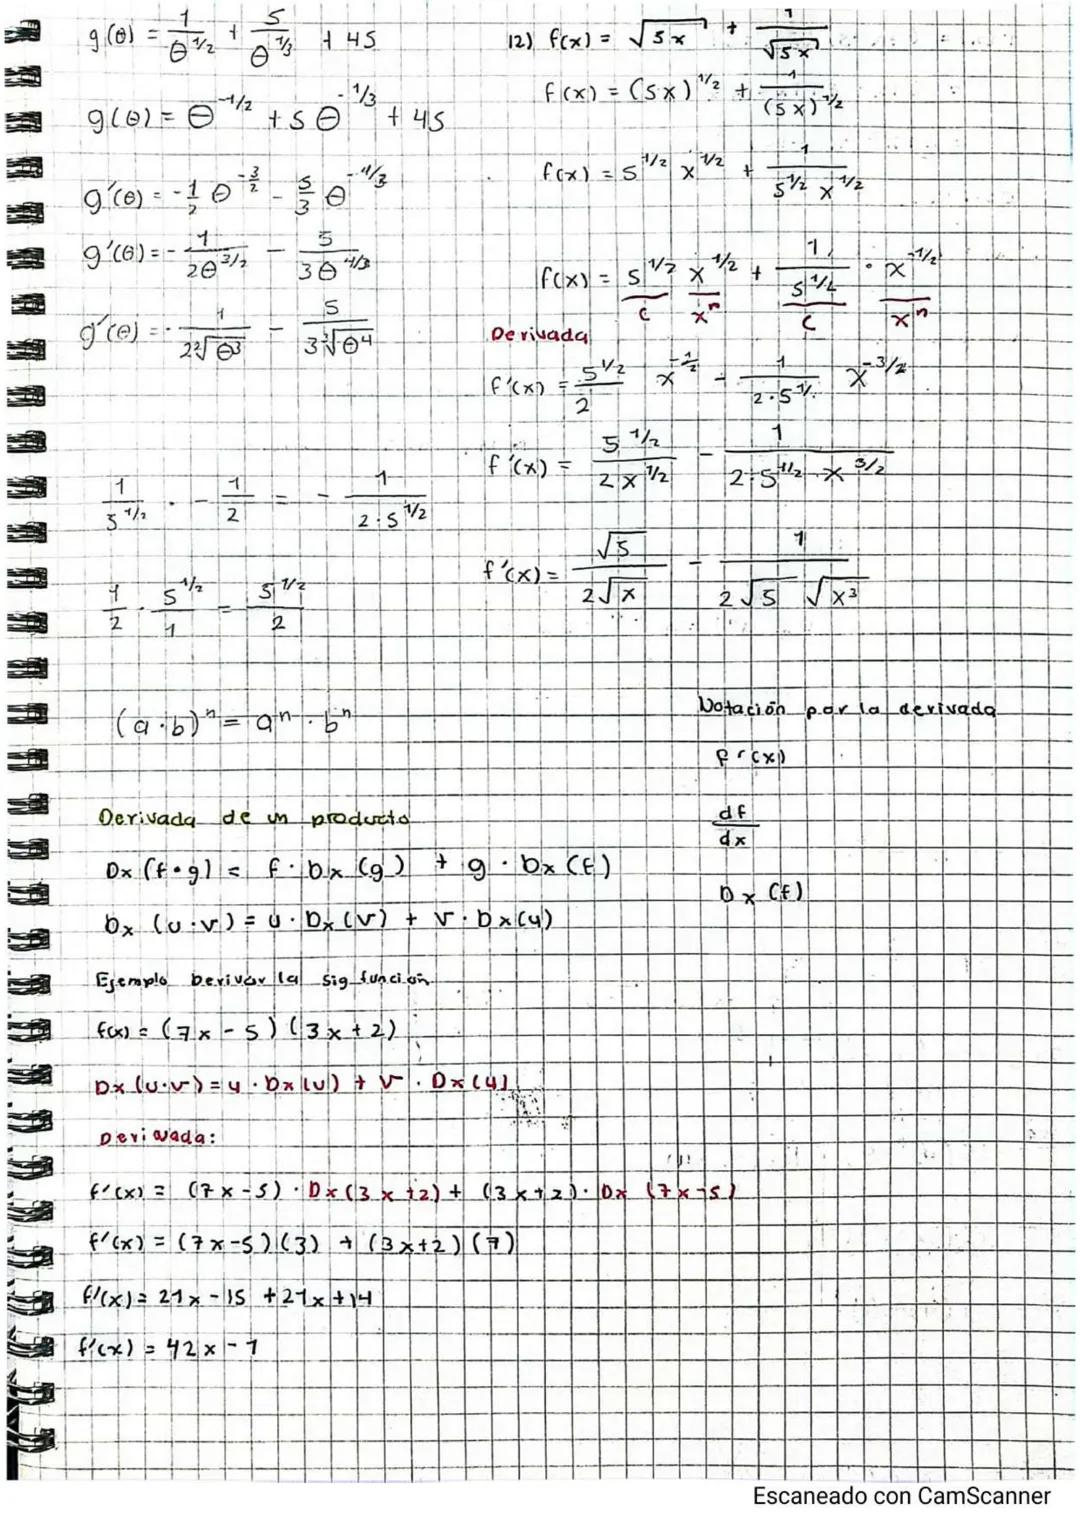 g(θ) = 1/θ^1/2 + 5/θ^1/3 + 45
g(θ) = θ^-1/2 + 5θ^-1/3 + 45
g'(θ) = -1/2 θ^-3/2 - 5/3 θ^-4/3
g'(θ) = - 1/2θ^3/2 - 5/3θ^4/3
g'(θ) = - 1/2²√θ³ - 5/3³√θ⁴
1/5^1/2 · - 1/2 = - 1/2·5^1/2
1/2 · 5^1/2/1 = 5^1/2/2
(a·b)ⁿ = aⁿ · bⁿ
12) f(x) = √5x + 1/√5x
f(x) = (5x)^1/2 + 1/(5x)^1/2
f(x) = 5^1/2 x^1/2 + 1/5^1/2 x^1/2
f(x) = 5^1/2 x^1/2 + 1/5^1/2 · x^-1/2
c xⁿ c xⁿ
Derivada
f'(x) = 5^1/2/2 x^-1/2 - 1/2·5^1/2 x^-3/2
f'(x) = 5^1/2/2x^1/2 - 1/2·5^1/2 x^3/2
f'(x) = √5/2√x - 1/2√5 √x³
Notación por la derivada
f'(x)
df/dx
Dx (f)
Derivada de un producto
Dx (f·g) = f · Dx (g) + g · Dx (f)
Dx (u·v) = u · Dx (v) + v · Dx (u)
Ejemplo Derivar la sig función
f(x) = (7x - 5) (3x + 2)
Dx (u·v) = u · Dx (v) + v · Dx (u)
Derivada:
f'(x) = (7x-5) · Dx (3x+2) + (3x+2) · Dx (7x-5)
f'(x) = (7x-5)(3) + (3x+2)(7)
f'(x) = 21x - 15 + 21x + 14
f'(x) = 42x - 1
Escaneado con CamScanner